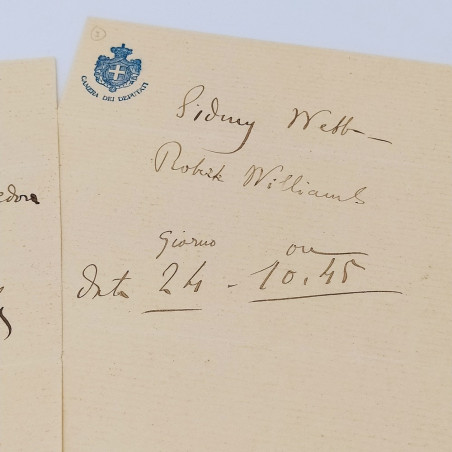 CAMERA DEI DEPUTATI
Sidney Webb
Robert Williams
Giorno ore
Data 24 - 10.45